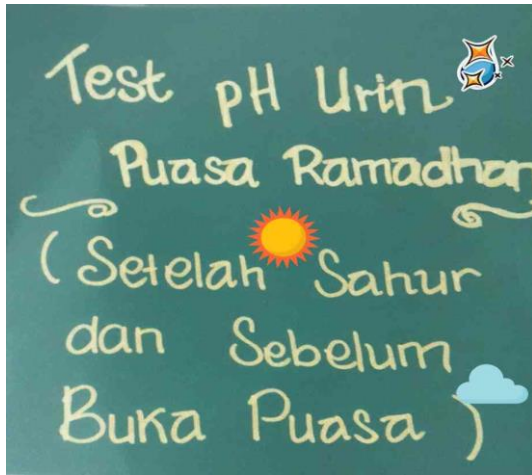 Test pH Urin
Puasa Ramadhan
(Setelah Sahur
dan Sebelum
Buka Puasa)